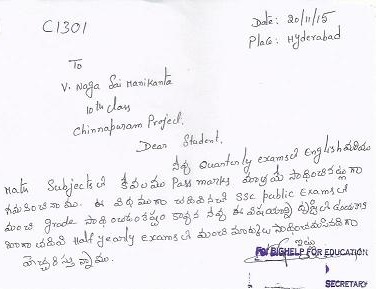 C1301
Date: 20/11/15
Place: Hyderabad
To
V. Naga Sai Manikanta
10th class
Chinnapuram Project.
Dear Student,
నీవు Quarterly exams లో English మరియు
Math Subjects లో కేవలము Pass marks మాత్రమే సాధించినట్లుగా
గమనించినాము. ఈ విధముగా చదివినచో SSC public Exams లో
మంచి grade సాధించడం కష్టం కావున నీవు ఈ విషయాన్ని దృష్టిలో
చదివి Half yearly exams లో మంచి మార్కులు
For BIGHELP FOR EDUCATION
SECRETARY